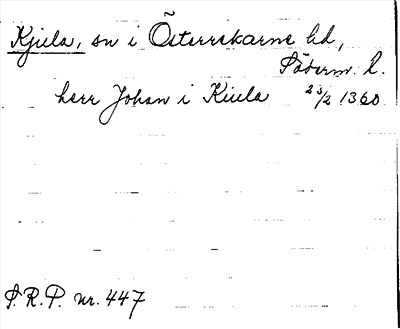 Kjula, sn i Österrekarne hd,
Söderm. l.
herr Johan i Kiula 23/2 1360
S.R.P. nr. 447